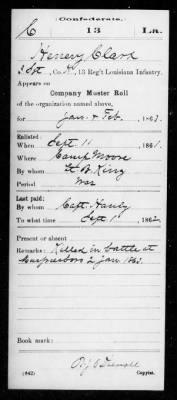 Confederate.
C 13 La.
Henery Clark
3 Sgt, Co. , 13 Reg't Louisiana Infantry.
Appears on
Company Muster Roll
of the organization named above,
for Jan. & Feb., 1863.
Enlisted:
When Sept. 11, 1861.
Where Camp Moore
By whom Lt. W. King
Period War
Last paid:
By whom Capt. Hanly
To what time Sept 1, 1862.
Present or absent
Remarks: Killed in battle at
Murfreesboro 2 Jan. 1863.
Book mark:
(642) Copyist.